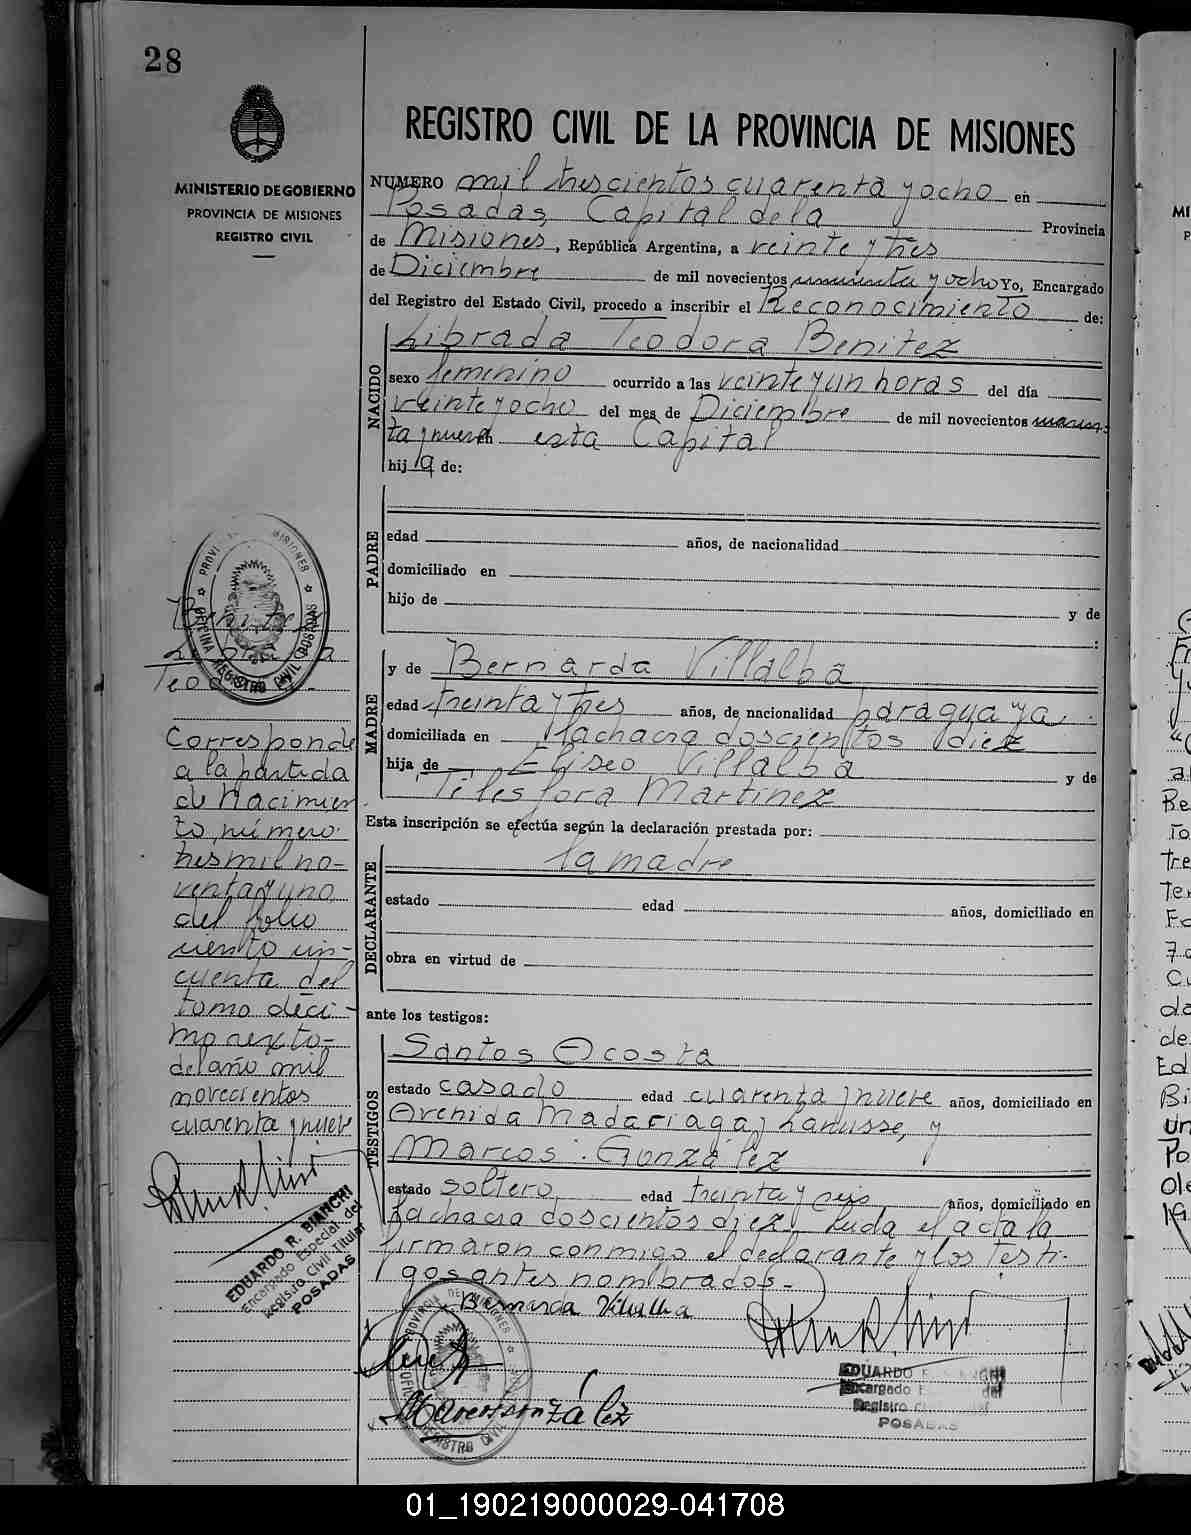 28
MINISTERIO DE GOBIERNO
PROVINCIA DE MISIONES
REGISTRO CIVIL
REGISTRO CIVIL DE LA PROVINCIA DE MISIONES
NUMERO mil trescientos cuarenta y ocho en
Posadas, Capital de la Provincia
de Misiones, República Argentina, a veinte y tres
de Diciembre de mil novecientos cincuenta y ocho Yo, Encargado
del Registro del Estado Civil, procedo a inscribir el Reconocimiento de:
NACIDO
Librada Teodora Benitez
sexo femenino ocurrido a las veinte y un horas del día
veinte y ocho del mes de Diciembre de mil novecientos cuaren-
ta y nueve en esta Capital
hija de:
PADRE
edad años, de nacionalidad
domiciliado en
hijo de y de
:
MADRE
y de Bernarda Villalba
edad treinta y tres años, de nacionalidad paraguaya
domiciliada en la chacra doscientos diez
hija de Eliseo Villalba y de
Telesfora Martinez
Esta inscripción se efectúa según la declaración prestada por:
DECLARANTE
la madre
estado edad años, domiciliado en
obra en virtud de
ante los testigos:
TESTIGOS
Santos Acosta
estado casado edad cuarenta y nueve años, domiciliado en
Avenida Madariaga y Lanusse, y
Marcos Gonzalez
estado soltero, edad treinta y seis años, domiciliado en
la chacra doscientos diez. Leida el acta la
firmaron conmigo el declarante y los testi-
gos antes nombrados.-
Bernarda Villalba
Marcos González
EDUARDO R. BIANCHI
Encargado Especial del
Registro Civil Titular
POSADAS
PROVINCIA DE MISIONES
OFICINA REGISTRO CIVIL POSADAS
Benitez
Librada
Teodora
Corresponde
a la partida
de Nacimien
to número
tres mil no-
venta y uno
del folio
ciento cin-
cuenta del
tomo déci-
mo sexto
del año mil
novecientos
cuarenta y nueve
EDUARDO R. BIANCHI
Encargado Especial del
Registro Civil Titular
POSADAS
01_190219000029-041708